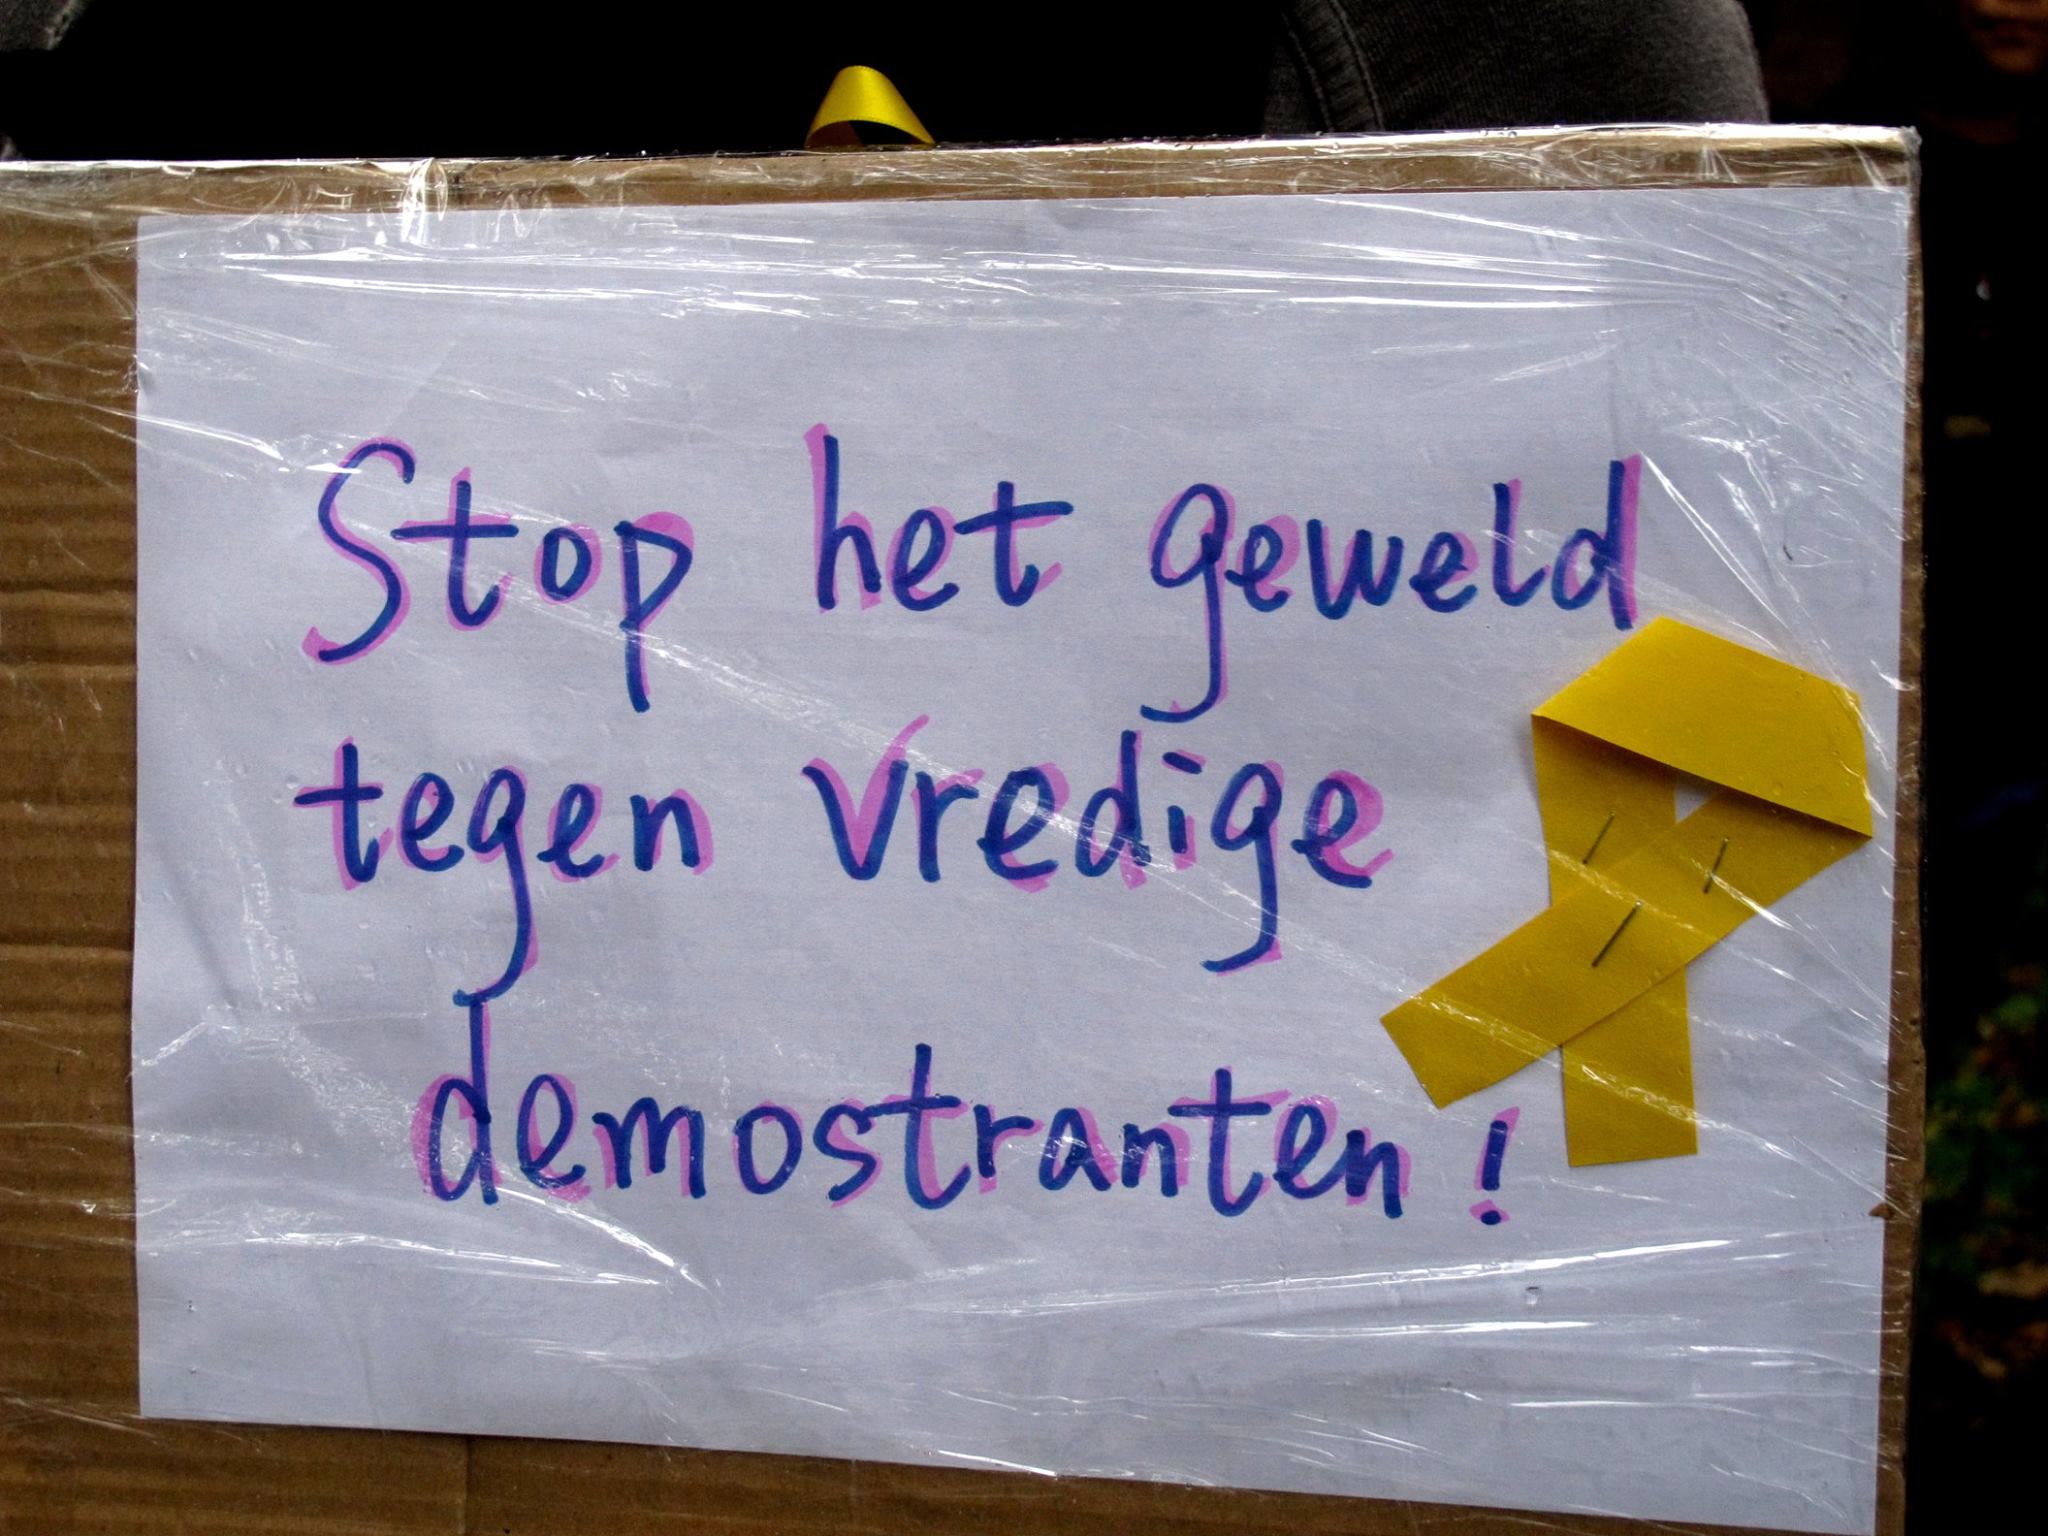 Stop het geweld
tegen vredige
demostranten!